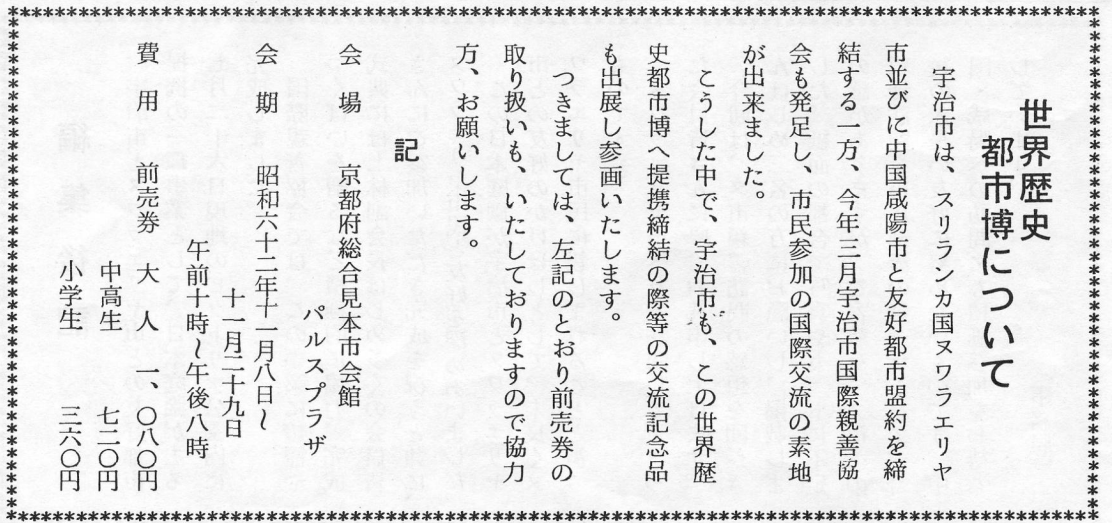 世界歴史
都市博について
宇治市は、スリランカ国ヌワラエリヤ
市並びに中国咸陽市と友好都市盟約を締
結する一方、今年三月宇治市国際親善協
会も発足し、市民参加の国際交流の素地
が出来ました。
こうした中で、宇治市も、この世界歴
史都市博へ提携締結の際等の交流記念品
も出展し参画いたします。
つきましては、左記のとおり前売券の
取り扱いも、いたしておりますので協力
方、お願いします。
記
会　場　　京都府総合見本市会館
パルスプラザ
会　期　　昭和六十二年十一月八日〜
十一月二十九日
午前十時〜午後八時
費　用　　前売券　大　人　一、〇八〇円
中高生　　七二〇円
小学生　　三六〇円